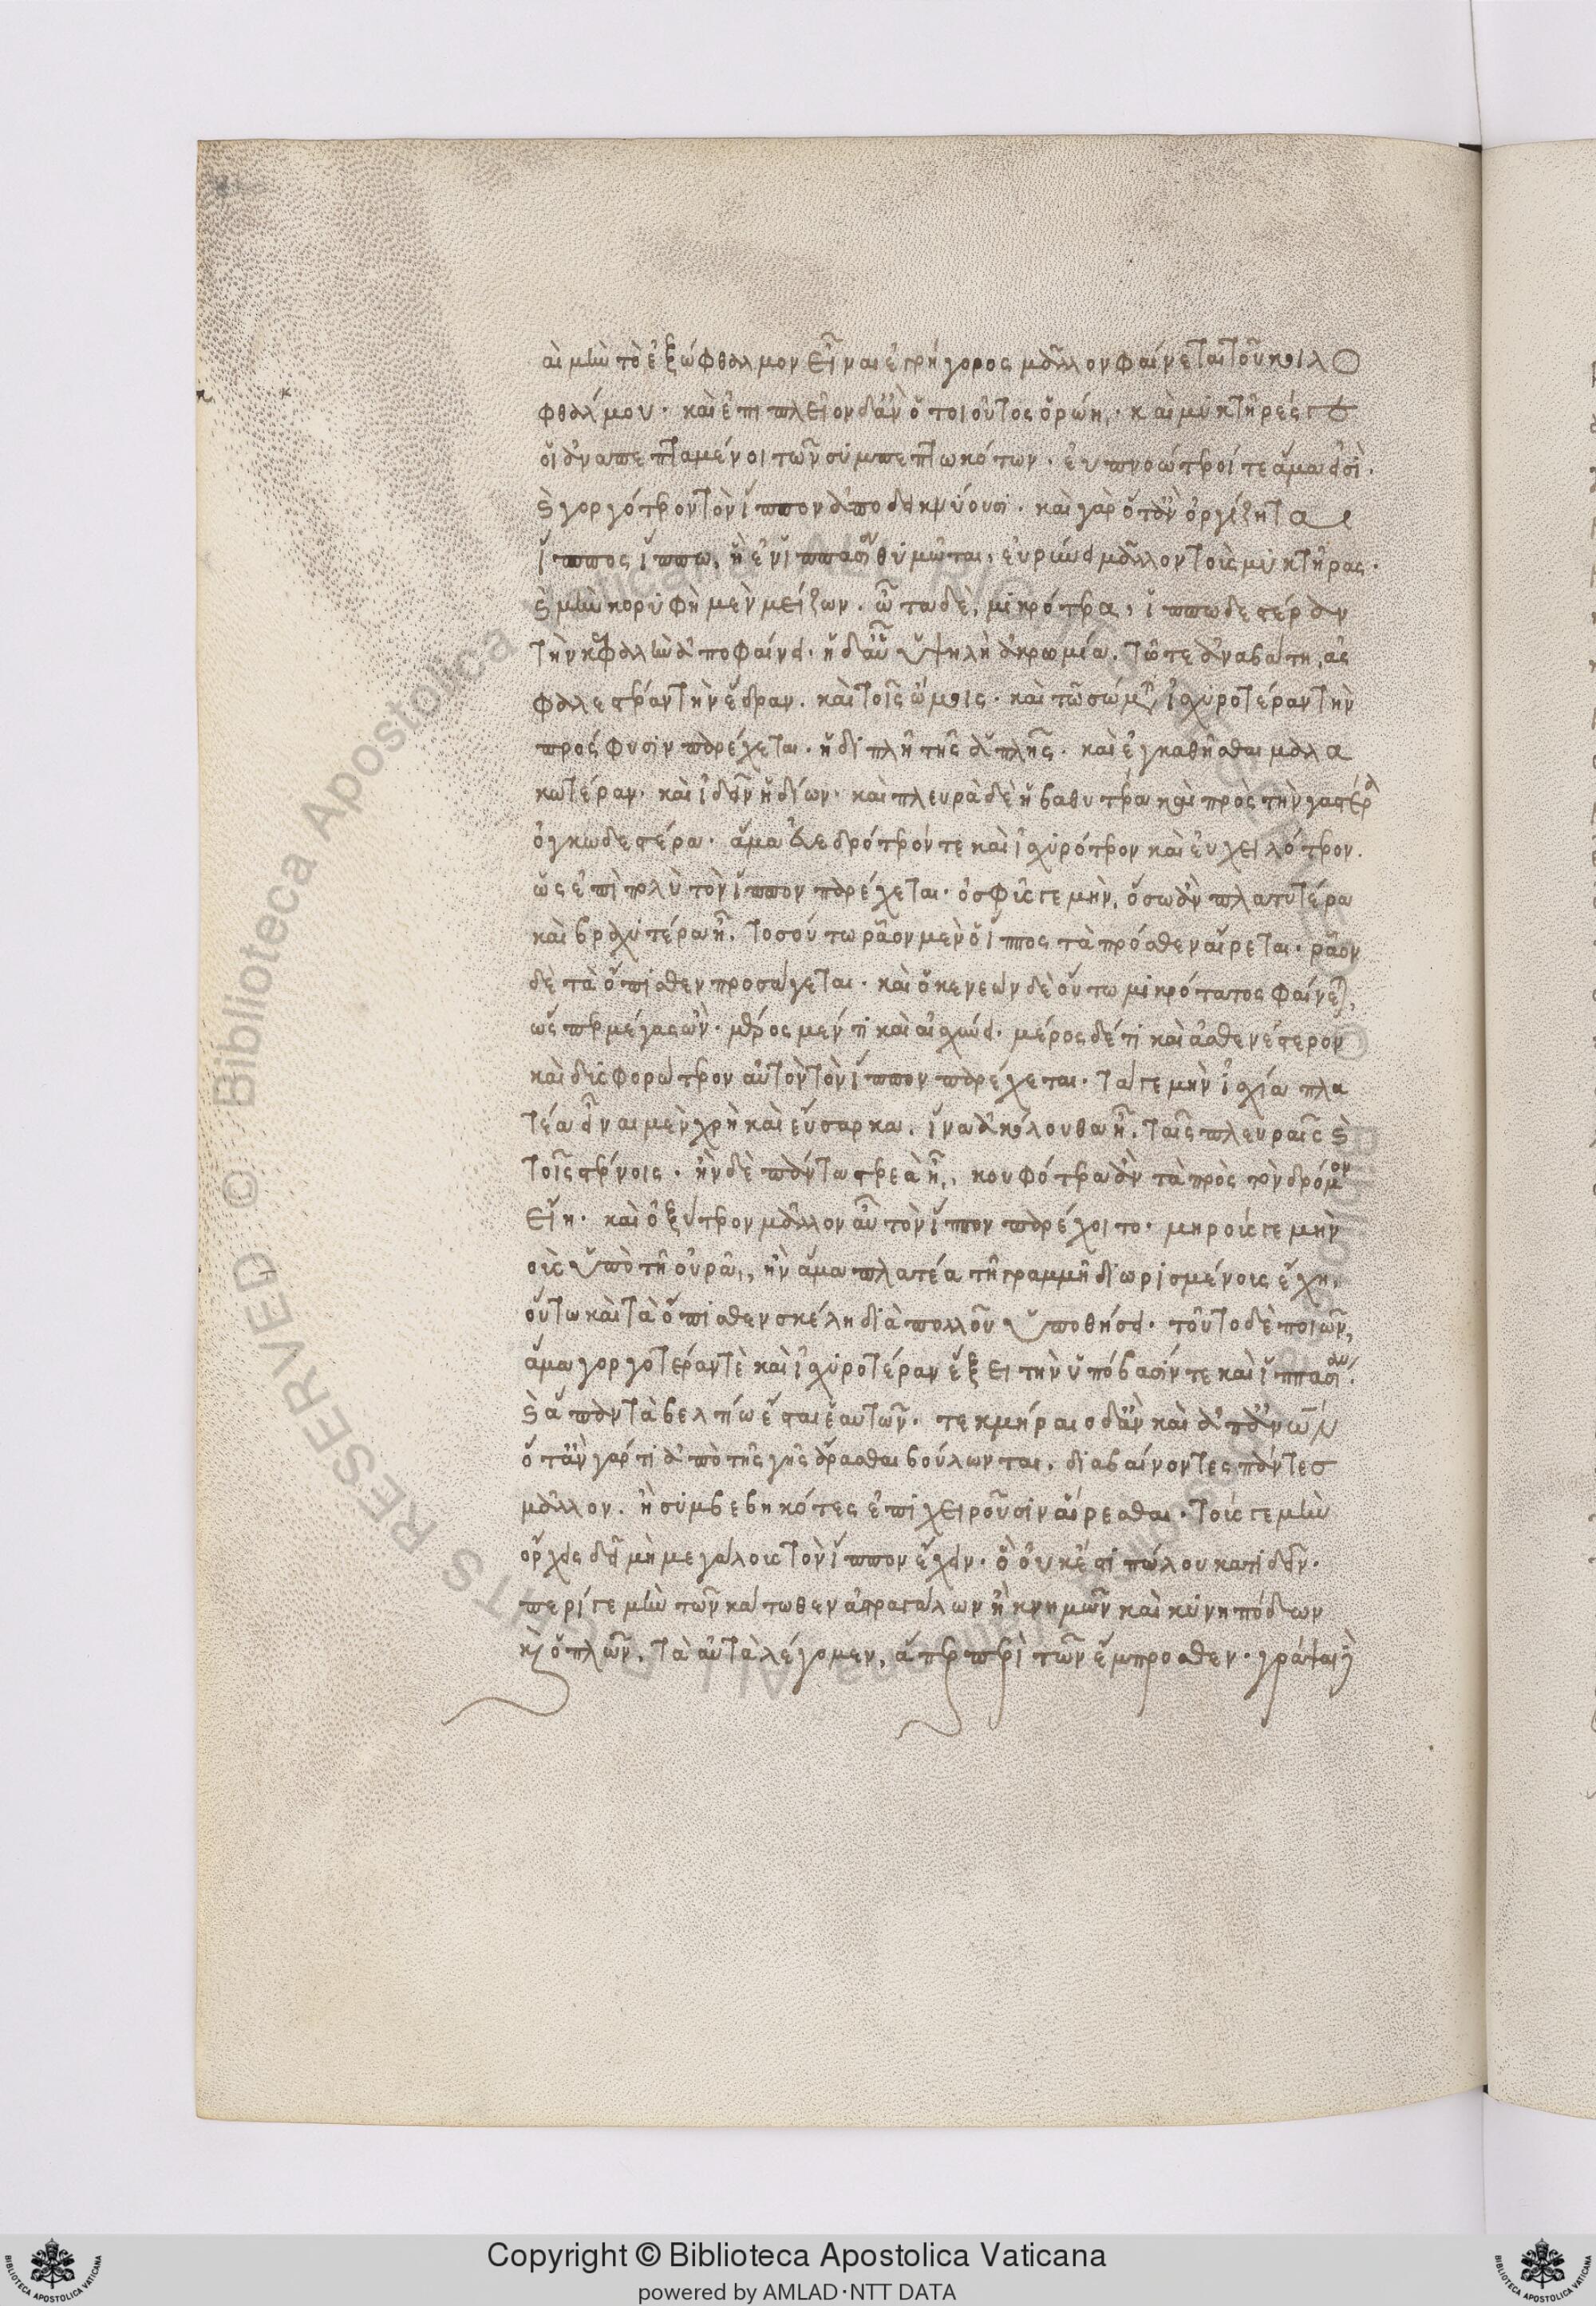 αι μὴν τὸ ἐξώφθαλμον εἶναι ἐγρήγορος μᾶλλον φαίνεται τοῦ κοιλο
φθάλμου. καὶ ἐπιπλεῖον δ' ἂν ὁ τοιοῦτος ὁρώη. καὶ μυκτῆρές γε
οἱ ἀναπεπταμένοι τῶν συμπεπτωκότων. εὐπνοώτεροί τε ἅμα εἰσὶ.
καὶ γοργότερον τὸν ἵππον ἀποδεικνύουσι. καὶ γὰρ ὅταν ὀργίζηται
ἵππος ἵππω, ἢ ἐν ἱππασία θυμῶται, εὐρύνει μᾶλλον τοὺς μυκτῆρας.
καὶ μὴν κορυφὴ μὲν μείζων. ὦτα δὲ, μικρότερα, ἱππωδεστέραν
τὴν κεφαλὴν ἀποφαίνει. ἡ δ' αὖ ὑψηλὴ ἀκρωμία. τῶ τε ἀναβάτη, ἀσ
φαλεστέραν τὴν ἕδραν. καὶ τοῖς ὤμοις. καὶ τῶ σώματι ἰσχυροτέραν τὴν
πρόσφυσιν παρέχεται. ἡ διπλῆ τῆς ἁπλῆς. καὶ ἐγκαθῆσθαι μαλα
κωτέραν. καὶ ἰδεῖν ἡδίων. καὶ πλευρὰ δὲ ἡ βαθυτέρα καὶ πρὸς τὴν γαστέρα
ὀγκωδεστέρα. ἅμα εὐεδρότερόν τε καὶ ἰσχυρότερον καὶ εὐχειλότερον.
ὡς ἐπὶ πολὺ τὸν ἵππον παρέχεται. ὀσφύς γε μὴν, ὅσω ἂν πλατυτέρα
καὶ βραχυτέρα ᾖ. τοσούτω ῥᾶον μὲν ὁ ἵππος τὰ πρόσθεν αἴρεται. ῥᾶον
δὲ τὰ ὄπισθεν προσάγεται. καὶ ὁ κενεὼν δὲ οὕτω μικρότατος φαίνεται,
ὥσπερ μέγας ὢν. μέρος μέν τι καὶ αἰσχύνει. μέρος δέ τι καὶ ἀσθενέστερον
καὶ δυσφορώτερον αὐτὸν τὸν ἵππον παρέχεται. τά γε μὴν ἰσχία πλα
τέα εἶναι μὲν χρὴ καὶ εὔσαρκα. ἵνα ἀκόλουθα ᾖ. ταῖς πλευραῖς καὶ
τοῖς στέρνοις. ἢν δὲ πάντα στερεὰ ᾖ, κουφότερα ἂν τὰ πρὸς τὸν δρόμον
εἴη. καὶ ὀξύτερον μᾶλλον αὖ τὸν ἵππον παρέχοιτο. μηρούς γε μὴν
τοὺς ὑπὸ τῆ οὐρᾶ, ἢν ἅμα πλατέα τῆ γραμμῆ διωρισμένους ἔχη,
οὕτω καὶ τὰ ὄπισθεν σκέλη διὰ πολλοῦ ὑποθήσει. τοῦτο δὲ ποιῶν,
ἅμα γοργοτέραν τὲ καὶ ἰσχυροτέραν ἕξει τὴν ὑπόβασίν τε καὶ ἱππασίαν.
καὶ ἅπαντα βελτίω ἔσται ἑαυτῶν. τεκμήραιο δ' ἂν καὶ ἀπ' ἀνων
ὅταν γάρ τι ἀπὸ τῆς γῆς ἄρασθαι βούλωνται. διαβαίνοντες πάντεσ
μᾶλλον. ἢ συμβεβηκότες ἐπιχειροῦσιν αἴρεσθαι. τούς γε μὴν
ὄρχεις δεῖ μὴ μεγάλους τὸν ἵππον ἔχειν. ὃ οὐκ ἔστι πώλου κατιδεῖν.
περί γε μὴν τῶν κάτωθεν ἀστραγάλων ἢ κνημῶν καὶ κυνηπόδων
καὶ ὁπλῶν, τὰ αὐτὰ λέγομεν, ἅπερ περὶ τῶν ἔμπροσθεν. γράψαι